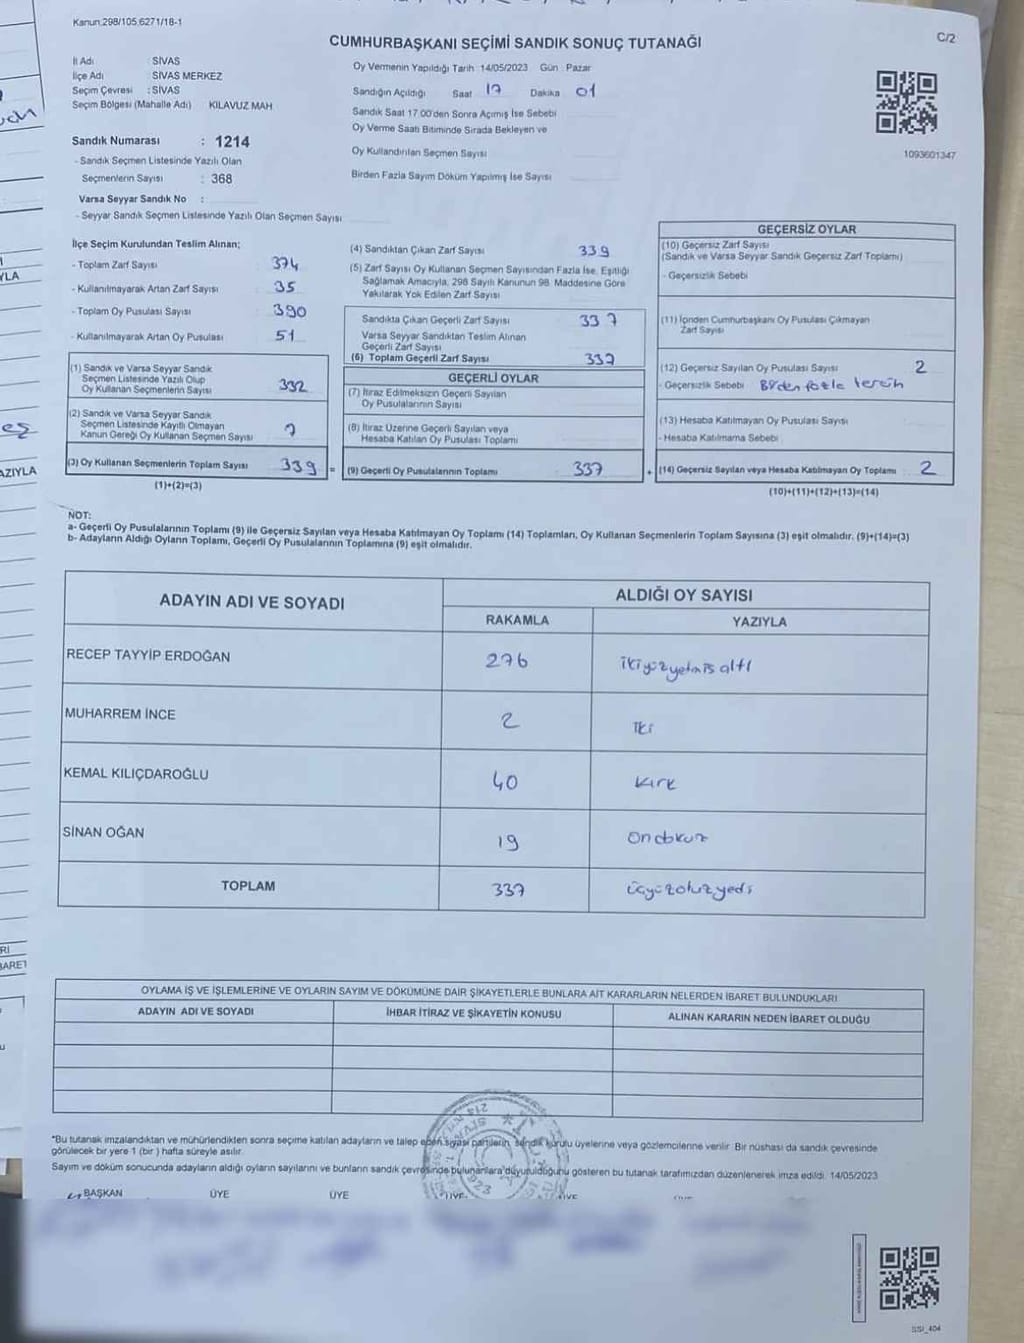 Kanun:298/105,6271/18-1
CUMHURBAŞKANI SEÇİMİ SANDIK SONUÇ TUTANAĞI
C/2
İl Adı : SİVAS
İlçe Adı : SİVAS MERKEZ
Seçim Çevresi : SİVAS
Seçim Bölgesi (Mahalle Adı) KILAVUZ MAH
Sandık Numarası : 1214
- Sandık Seçmen Listesinde Yazılı Olan
Seçmenlerin Sayısı : 368
Varsa Seyyar Sandık No :
- Seyyar Sandık Seçmen Listesinde Yazılı Olan Seçmen Sayısı
Oy Vermenin Yapıldığı Tarih 14/05/2023 Gün Pazar
Sandığın Açıldığı Saat 17 Dakika 01
Sandık Saat 17.00'den Sonra Açılmış İse Sebebi
Oy Verme Saati Bitiminde Sırada Bekleyen ve
Oy Kullandırılan Seçmen Sayısı
Birden Fazla Sayım Döküm Yapılmış İse Sayısı
1093601347
İlçe Seçim Kurulundan Teslim Alınan;
- Toplam Zarf Sayısı 374
- Kullanılmayarak Artan Zarf Sayısı 35
- Toplam Oy Pusulası Sayısı 390
- Kullanılmayarak Artan Oy Pusulası 51
(1) Sandık ve Varsa Seyyar Sandık
Seçmen Listesinde Yazılı Olup
Oy Kullanan Seçmenlerin Sayısı 332
(2) Sandık ve Varsa Seyyar Sandık
Seçmen Listesinde Kayıtlı Olmayan
Kanun Gereği Oy Kullanan Seçmen Sayısı 7
(3) Oy Kullanan Seçmenlerin Toplam Sayısı 339 =
(1)+(2)=(3)
(4) Sandıktan Çıkan Zarf Sayısı 339
(5) Zarf Sayısı Oy Kullanan Seçmen Sayısından Fazla İse, Eşitliği
Sağlamak Amacıyla, 298 Sayılı Kanunun 98. Maddesine Göre
Yakılarak Yok Edilen Zarf Sayısı
Sandıkta Çıkan Geçerli Zarf Sayısı 337
Varsa Seyyar Sandıktan Teslim Alınan
Geçerli Zarf Sayısı
(6) Toplam Geçerli Zarf Sayısı 337
GEÇERLİ OYLAR
(7) İtiraz Edilmeksizin Geçerli Sayılan
Oy Pusulalarının Sayısı
(8) İtiraz Üzerine Geçerli Sayılan veya
Hesaba Katılan Oy Pusulası Toplamı
(9) Geçerli Oy Pusulalarının Toplamı 337 +
GEÇERSİZ OYLAR
(10) Geçersiz Zarf Sayısı
(Sandık ve Varsa Seyyar Sandık Geçersiz Zarf Toplamı)
- Geçersizlik Sebebi
(11) İçinden Cumhurbaşkanı Oy Pusulası Çıkmayan
Zarf Sayısı
(12) Geçersiz Sayılan Oy Pusulası Sayısı 2
- Geçersizlik Sebebi Birden fazla tercih
(13) Hesaba Katılmayan Oy Pusulası Sayısı
- Hesaba Katılmama Sebebi
(14) Geçersiz Sayılan veya Hesaba Katılmayan Oy Toplamı 2
(10)+(11)+(12)+(13)=(14)
NOT:
a- Geçerli Oy Pusulalarının Toplamı (9) ile Geçersiz Sayılan veya Hesaba Katılmayan Oy Toplamı (14) Toplamları, Oy Kullanan Seçmenlerin Toplam Sayısına (3) eşit olmalıdır. (9)+(14)=(3)
b- Adayların Aldığı Oyların Toplamı, Geçerli Oy Pusulalarının Toplamına (9) eşit olmalıdır.
ADAYIN ADI VE SOYADI
ALDIĞI OY SAYISI
RAKAMLA YAZIYLA
RECEP TAYYİP ERDOĞAN 276 ikiyüzyetmişaltı
MUHARREM İNCE 2 iki
KEMAL KILIÇDAROĞLU 40 kırk
SİNAN OĞAN 19 ondokuz
TOPLAM 337 üçyüzotuzyedi
OYLAMA İŞ VE İŞLEMLERİNE VE OYLARIN SAYIM VE DÖKÜMÜNE DAİR ŞİKAYETLERLE BUNLARA AİT KARARLARIN NELERDEN İBARET BULUNDUKLARI
ADAYIN ADI VE SOYADI İHBAR İTİRAZ VE ŞİKAYETİN KONUSU ALINAN KARARIN NEDEN İBARET OLDUĞU
*Bu tutanak imzalandıktan ve mühürlendikten sonra seçime katılan adayların ve talep eden siyasi partilerin, sandık kurulu üyelerine veya gözlemcilerine verilir. Bir nüshası da sandık çevresinde
görülecek bir yere 1 (bir) hafta süreyle asılır.
Sayım ve döküm sonucunda adayların aldığı oyların sayılarını ve bunların sandık çevresinde bulunanlara duyurulduğunu gösteren bu tutanak tarafımızdan düzenlenerek imza edildi. 14/05/2023
BAŞKAN ÜYE ÜYE ÜYE ÜYE
SSI_404
YLA
AZIYLA
RI
BARET